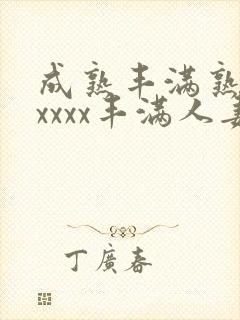 成熟丰满熟
xxxx丰满人妻
丁廣春